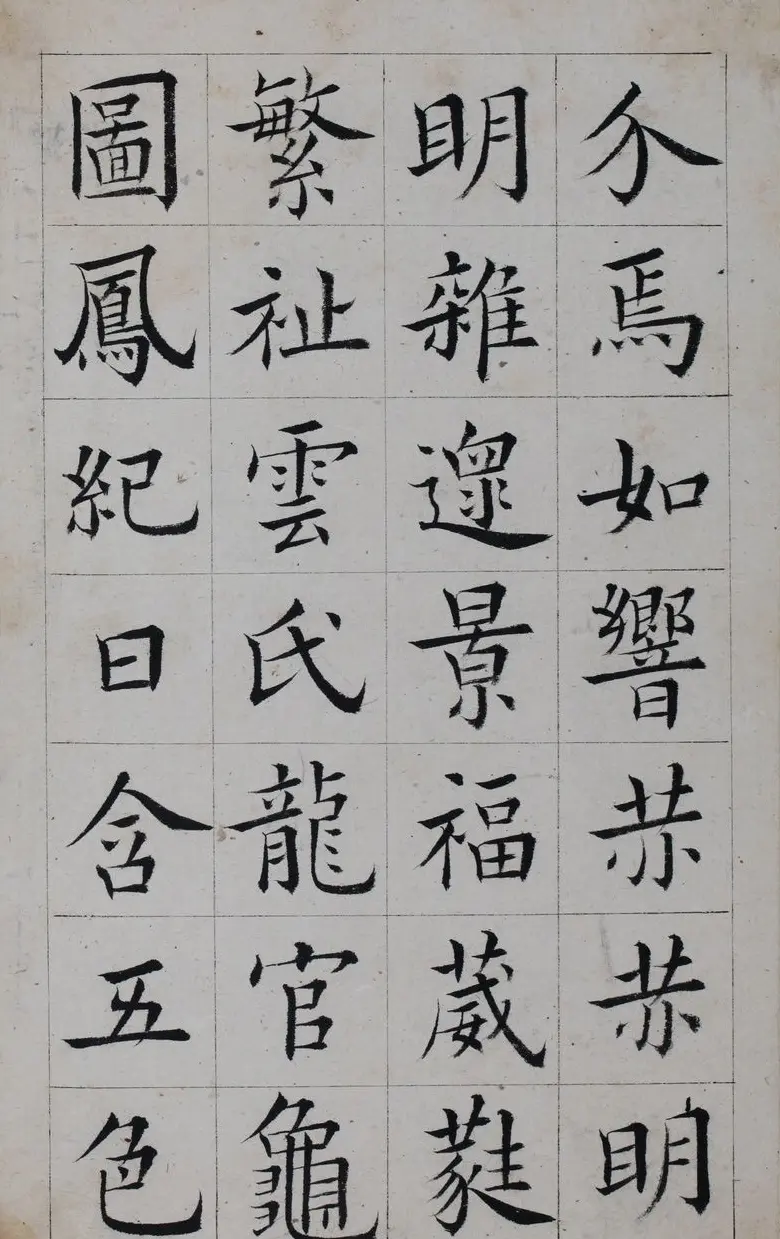 介焉如響赫赫明
明雜遝景福葳蕤
繁祉雲氏龍官龜
圖鳳紀日含五色